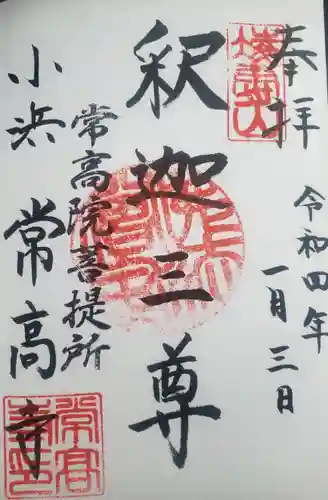 奉拝
令和四年
一月三日
釈迦三尊
常高院菩提所
小浜
常高寺